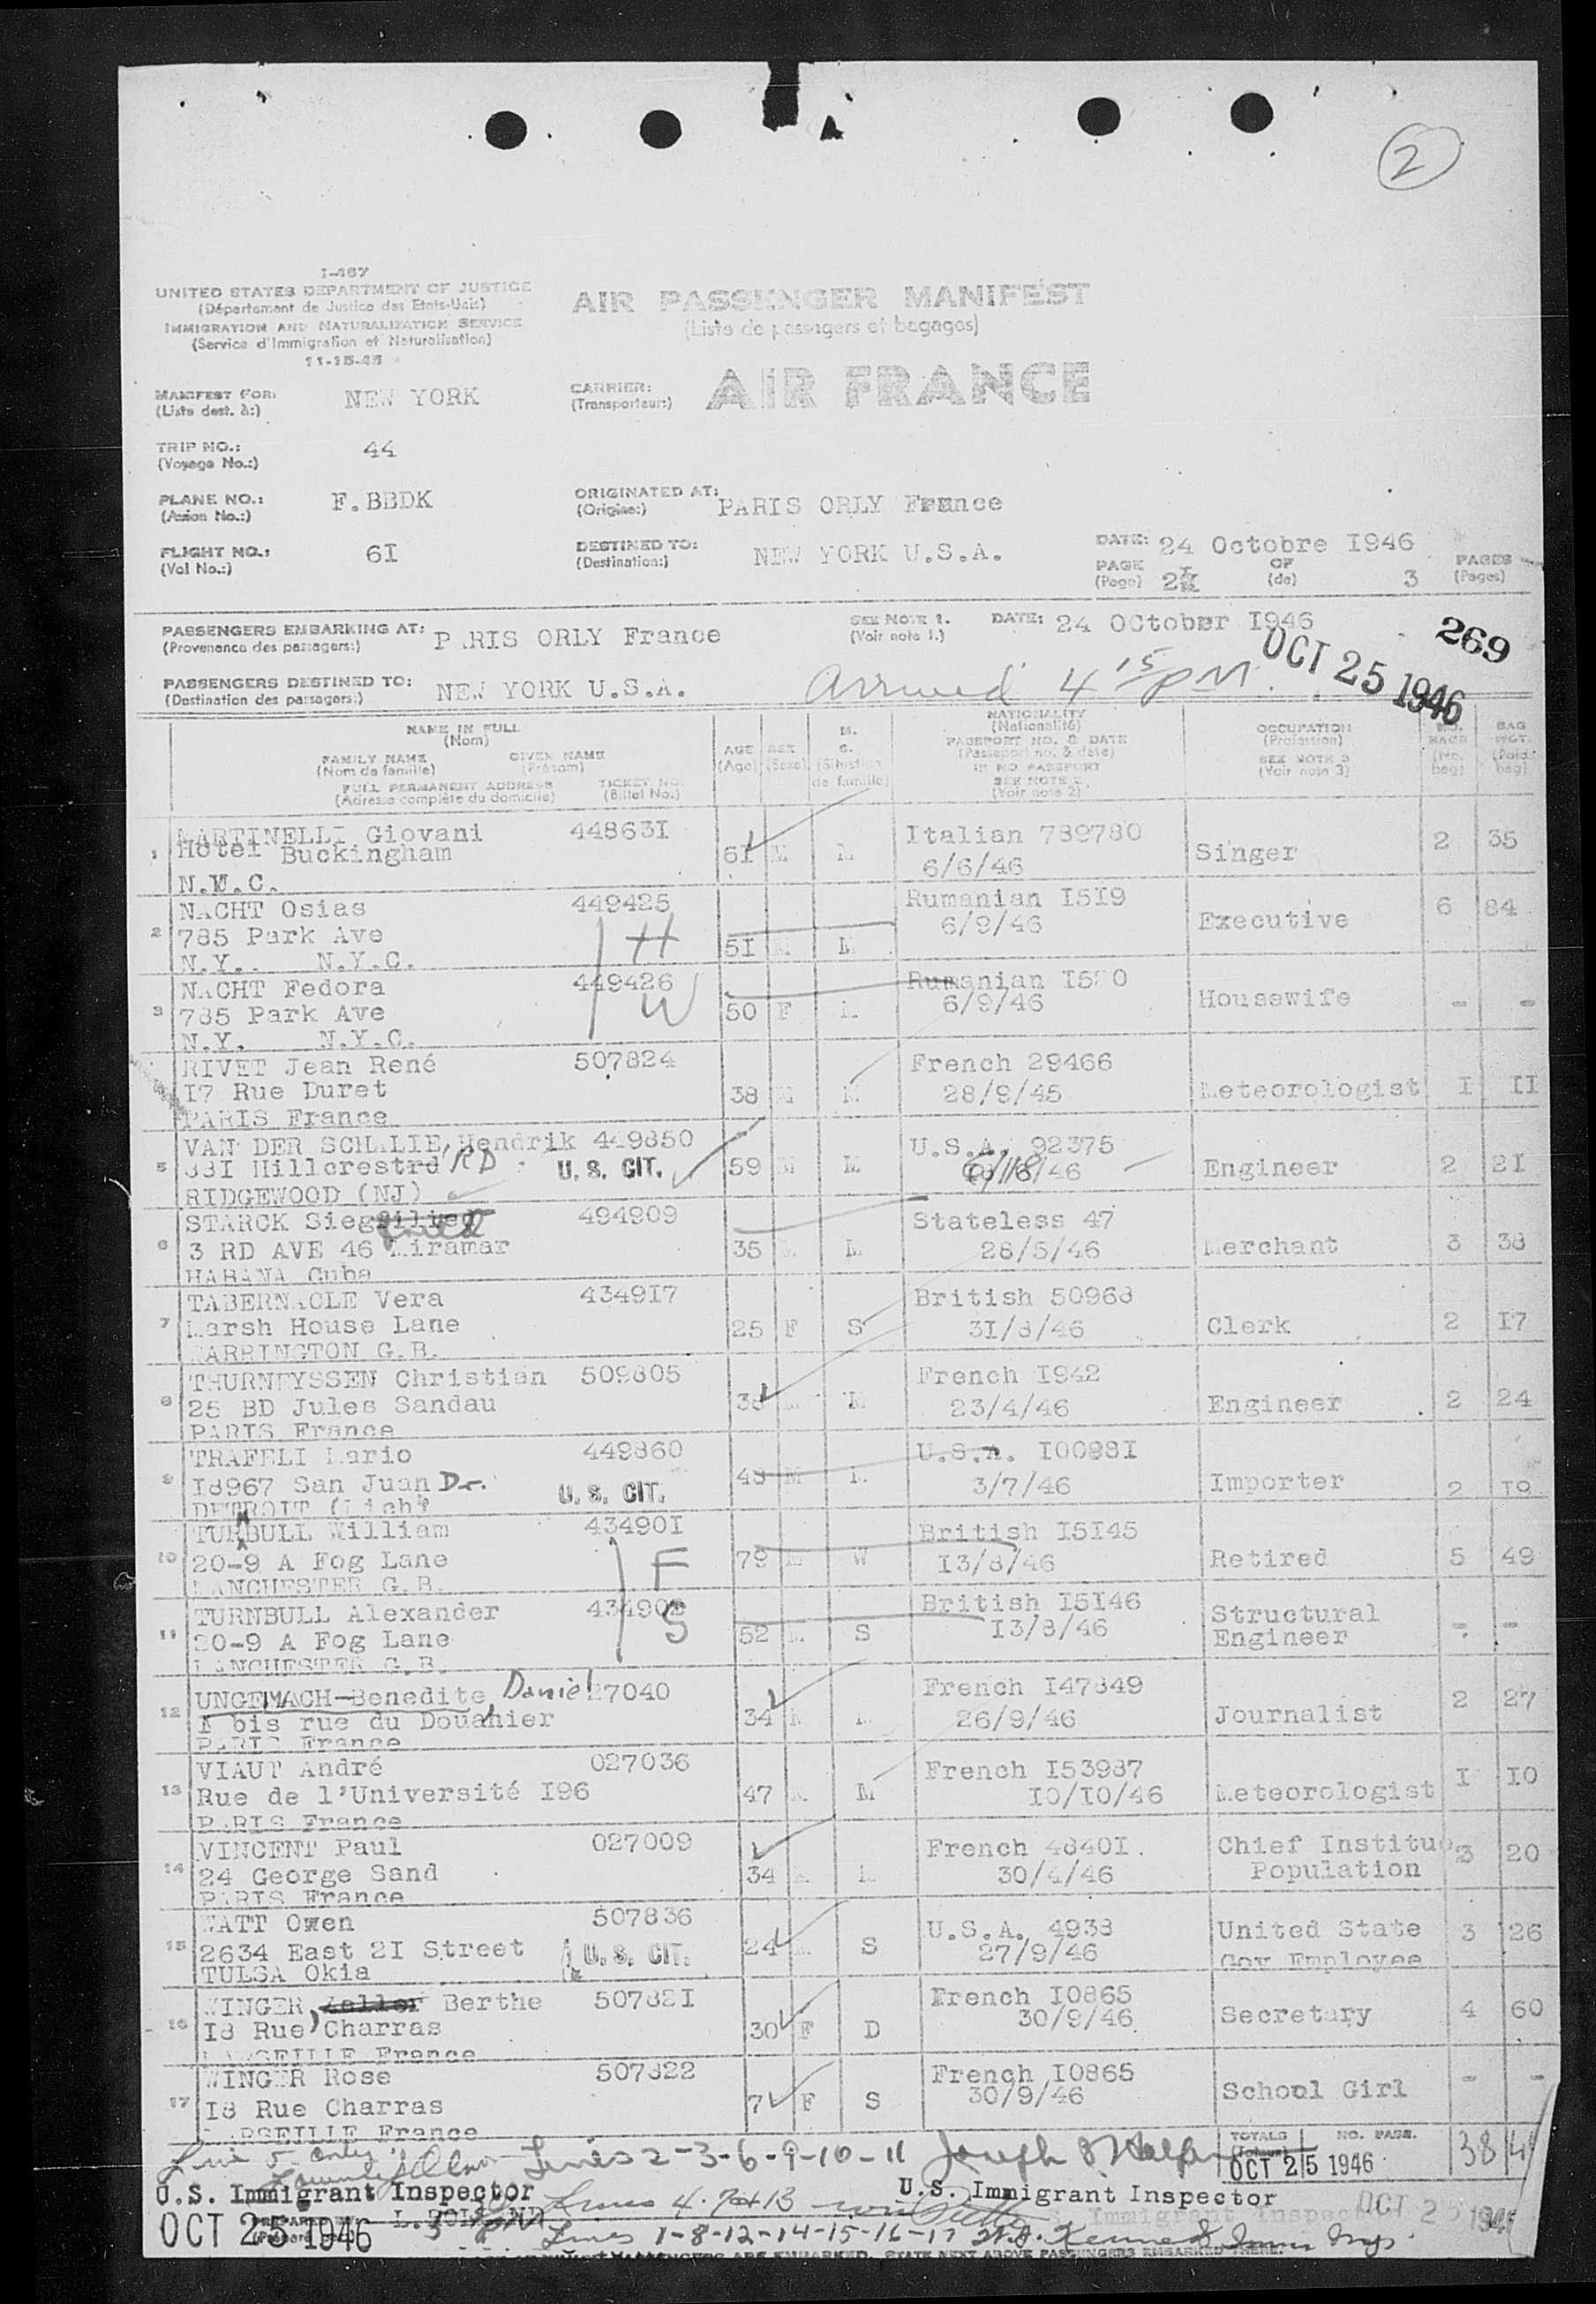 2
I-467
UNITED STATES DEPARTMENT OF JUSTICE
(Département de Justice des Etats-Unis)
IMMIGRATION AND NATURALIZATION SERVICE
(Service d'Immigration et Naturalisation)
11-15-45
AIR PASSENGER MANIFEST
(Liste de passagers et bagages)
MANIFEST FOR: NEW YORK
(Liste dest. à:)
CARRIER: AIR FRANCE
(Transporteur:)
TRIP NO.: 44
(Voyage No.:)
PLANE NO.: F.BBDK
(Avion No.:)
ORIGINATED AT: PARIS ORLY France
(Origine:)
FLIGHT NO.: 6I
(Vol No.:)
DESTINED TO: NEW YORK U.S.A.
(Destination:)
DATE: 24 Octobre I946
PAGE 2 OF 3 PAGES
(Page) (de) (Pages)
PASSENGERS EMBARKING AT: PARIS ORLY France
(Provenance des passagers:)
SEE NOTE 1.
(Voir note 1.)
DATE: 24 OCtober I946
269
OCT 25 1946
PASSENGERS DESTINED TO: NEW YORK U.S.A.
(Destination des passagers:)
Arrived 4 15 PM.
NAME IN FULL
(Nom)
FAMILY NAME GIVEN NAME
(Nom de famille) (Prénom)
FULL PERMANENT ADDRESS TICKET NO.
(Adresse complète du domicile) (Billet No.)
AGE
(Age)
SEX
(Sexe)
M.
S.
(Situation de famille)
NATIONALITY
(Nationalité)
PASSPORT NO. & DATE
(Passeport no. & date)
IF NO PASSPORT
SEE NOTE 2
(Voir note 2)
OCCUPATION
(Profession)
SEE NOTE 3
(Voir note 3)
NO. BAGS
(No. bag)
BAG WGT.
(Poids bag)
1 MARTINELLI Giovani 44863I 6I M M Italian 789780 Singer 2 35
Hotel Buckingham 6/6/46
N.Y.C.
2 NACHT Osias 449425 5I M M Rumanian I5I9 Executive 6 84
785 Park Ave H 6/9/46
N.Y.. N.Y.C.
3 NACHT Fedora 449426 50 F M Rumanian I520 Housewife - -
785 Park Ave W 6/9/46
N.Y. N.Y.C.
RIVET Jean René 507824 38 M M French 29466 Meteorologist I II
I7 Rue Duret 28/9/45
PARIS France
5 VAN DER SCHALIE, Hendrik 449850 59 M M U.S.A. 92375 Engineer 2 2I
38I Hillcrestrd RD U.S. CIT.
RIDGEWOOD (NJ)
6 STARCK Siegfried 494909 35 M M Stateless 47 Merchant 3 38
3 RD AVE 46 Miramar 28/5/46
HABANA Cuba
7 TABERNACLE Vera 4349I7 25 F S British 50968 Clerk 2 I7
Marsh House Lane 3I/8/46
WARRINGTON G.B.
8 THURNEYSSEN Christian 509805 38 M M French I942 Engineer 2 24
25 BD Jules Sandau 23/4/46
PARIS France
9 TRAFELI Mario 449860 48 M M U.S.A. I0098I Importer 2 I9
I8967 San Juan Dr. U.S. CIT. 3/7/46
DETROIT (Mich)
10 TURNBULL William 43490I 79 M W British I5I45 Retired 5 49
20-9 A Fog Lane F I3/8/46
MANCHESTER G.B.
11 TURNBULL Alexander 434902 52 M S British I5I46 Structural Engineer - -
20-9 A Fog Lane S I3/8/46
MANCHESTER G.B.
12 UNGEMACH-Benedite, Daniel 27040 34 M M French I47849 Journalist 2 27
I bis rue du Douanier 26/9/46
PARIS France
13 VIAUT André 027036 47 M M French I53987 Meteorologist I I0
Rue de l'Université I96 I0/I0/46
PARIS France
14 VINCENT Paul 027009 34 M M French 4840I. Chief Institue Population 3 20
24 George Sand 30/4/46
PARIS France
15 WATT Owen 507836 24 M S U.S.A. 4938 United State Gov Employee 3 26
2634 East 2I Street U.S. CIT. 27/9/46
TULSA Okia
16 WINGER, Zeller Berthe 50782I 30 F D French I0865 Secretary 4 60
I8 Rue Charras 30/9/46
MARSEILLE France
17 WINGER Rose 507822 7 F S French I0865 School Girl - -
I8 Rue Charras 30/9/46
MARSEILLE France
TOTALS NO. PASS. 38
Line 5 only
Lines 2-3-6-9-10-11 Joseph
OCT 25 1946
U.S. Immigrant Inspector
U.S. Immigrant Inspector
Lines 4-7-13
OCT 25 1946
OCT 25 1946
Lines 1-8-12-14-15-16-17